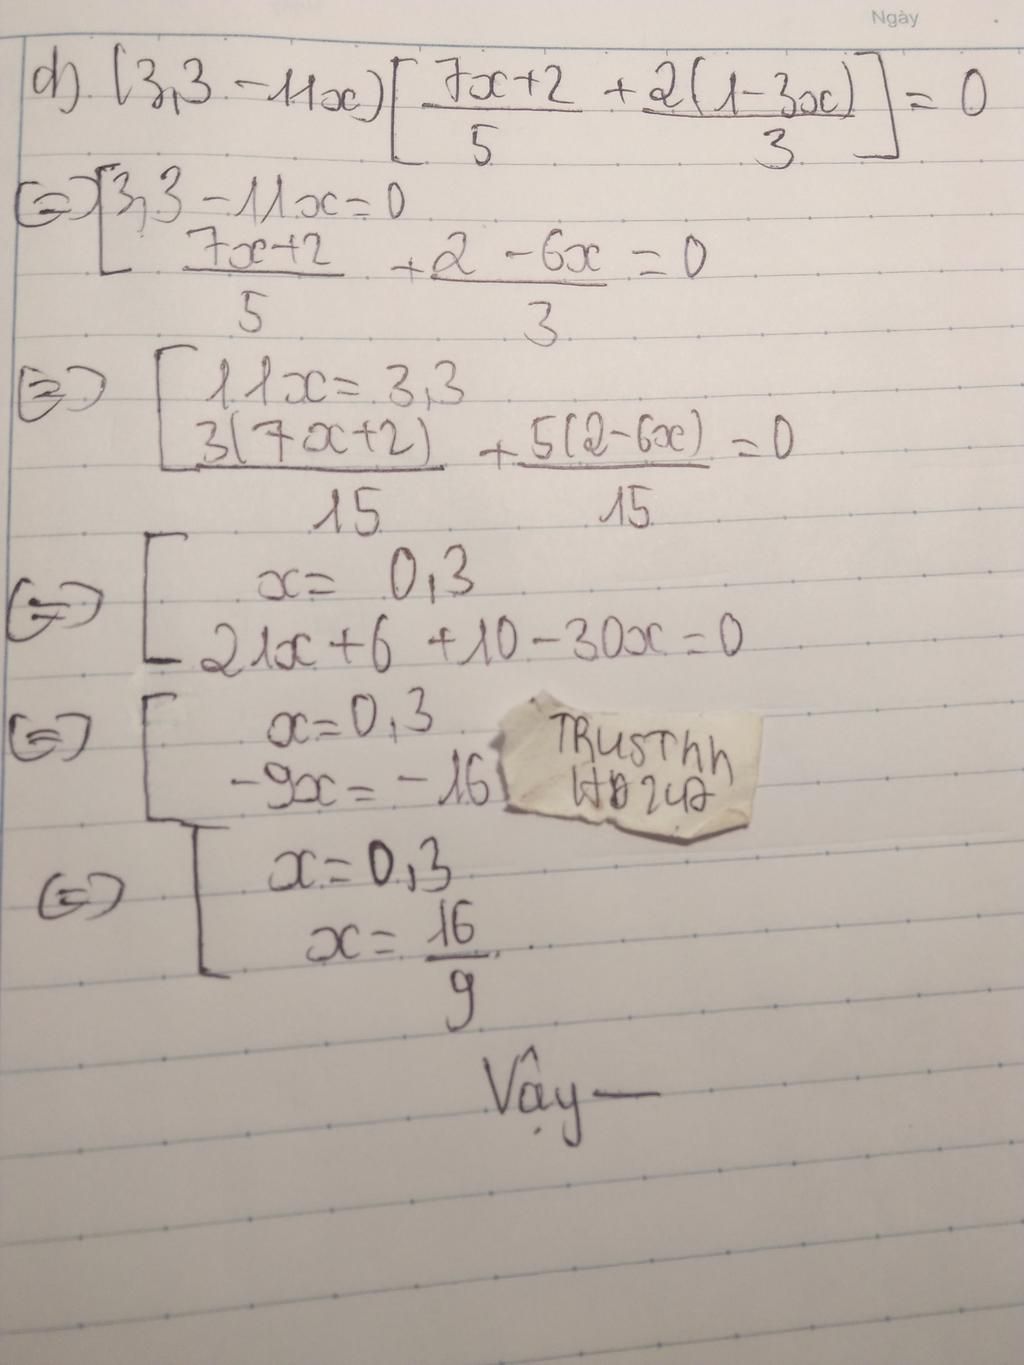 Ngày
d) (3,3 - 11x) [ (7x+2)/5 + 2(1-3x)/3 ] = 0
(=) [ 3,3 - 11x = 0
(7x+2)/5 + (2 - 6x)/3 = 0
(=) [ 11x = 3,3
3(7x+2)/15 + 5(2-6x)/15 = 0
(=) [ x = 0,3
21x + 6 + 10 - 30x = 0
(=) [ x = 0,3
-9x = -16
TRUSThh
HD247
(=) [ x = 0,3
x = 16/9
Vậy —